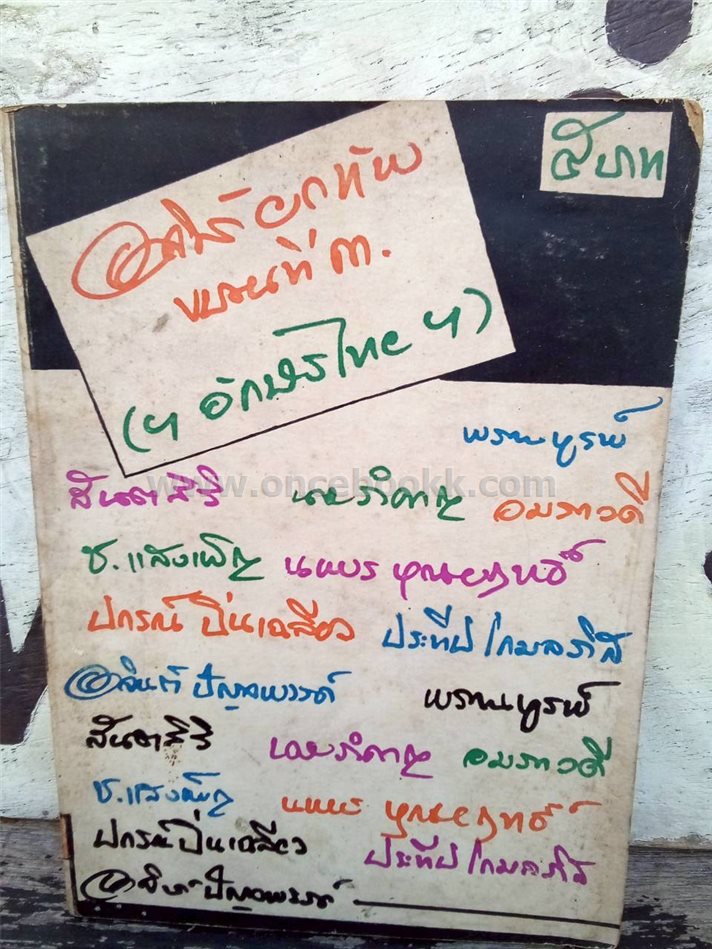 ๕ บาท
ยกทัพ
ที่ ๓.
(ฯ อักษรไทย ฯ)
พรานบูรพ์
www.oncebookk.com
สันตสิริ นายรำคาญ อมราวดี
ช.แสงเพ็ญ นเพบร บุณยฤทธิ์
ปกรณ์ ปิ่นเฉลียว ประทีป โกมลภิส
อาจินต์ ปัญจพรรค์ พรานบูรพ์
สันตสิริ นายรำคาญ อมราวดี
ช.แสงเพ็ญ บุณยฤทธิ์
ปกรณ์ ปิ่นเฉลียว ประทีป โกมลภิส
อาจินต์ ปัญจพรรค์